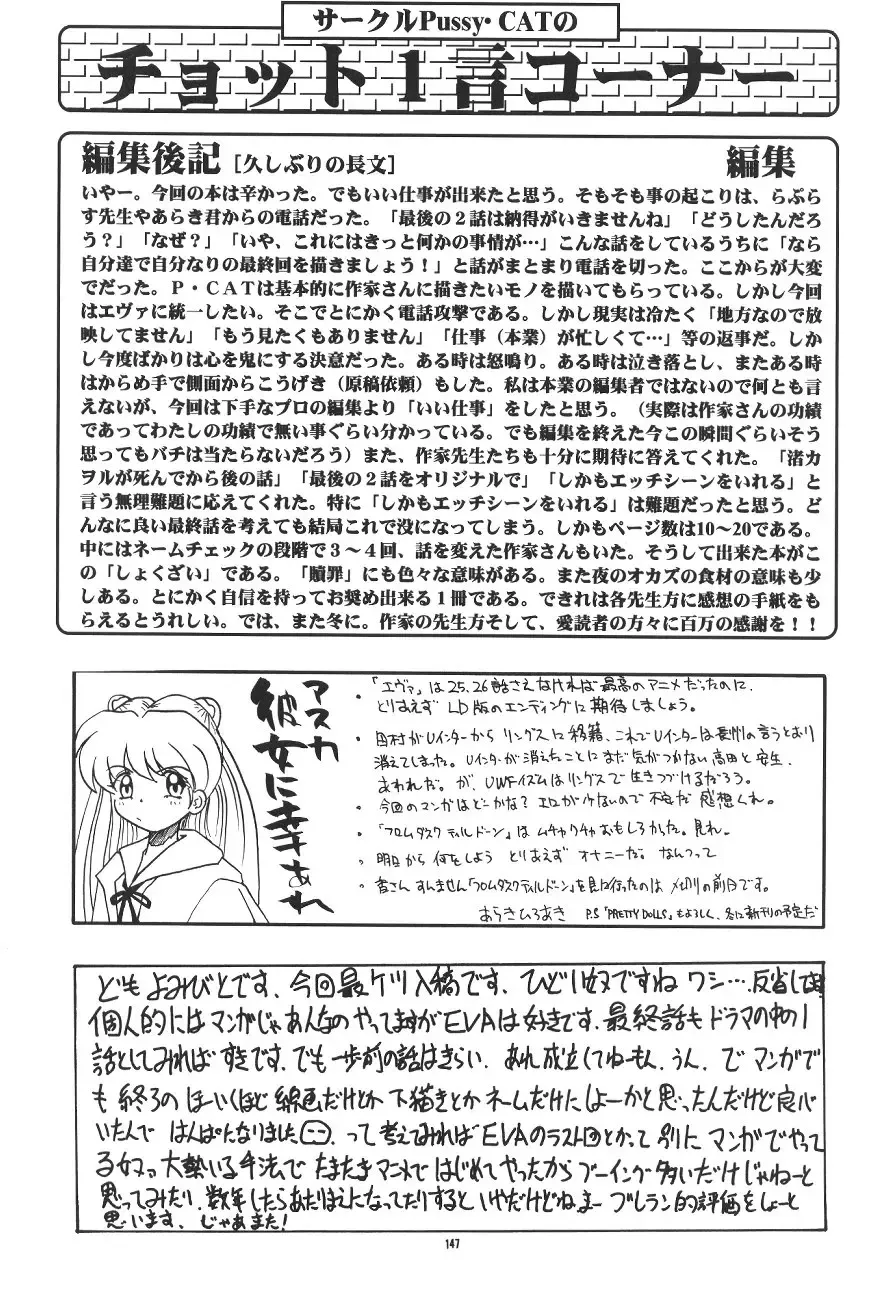 サークルPussy・CATの
チョット1言コーナー
編集後記［久しぶりの長文］ 編集
いやー。今回の本は辛かった。でもいい仕事が出来たと思う。そもそも事の起こりは、らぷら
す先生やあらき君からの電話だった。「最後の２話は納得がいきませんね」「どうしたんだろ
う？」「なぜ？」「いや、これにはきっと何かの事情が…」こんな話をしているうちに「なら
自分達で自分なりの最終回を描きましょう！」と話がまとまり電話を切った。ここからが大変
でだった。Ｐ・ＣＡＴは基本的に作家さんに描きたいモノを描いてもらっている。しかし今回
はエヴァに統一したい。そこでとにかく電話攻撃である。しかし現実は冷たく「地方なので放
映してません」「もう見たくもありません」「仕事（本業）が忙しくて…」等の返事だ。しか
し今度ばかりは心を鬼にする決意だった。ある時は怒鳴り。ある時は泣き落とし、またある時
はからめ手で側面からこうげき（原稿依頼）もした。私は本業の編集者ではないので何とも言
えないが、今回は下手なプロの編集より「いい仕事」をしたと思う。（実際は作家さんの功績
であってわたしの功績で無い事ぐらい分かっている。でも編集を終えた今この瞬間ぐらいそう
思ってもバチは当たらないだろう）また、作家先生たちも十分に期待に答えてくれた。「渚カ
ヲルが死んでから後の話」「最後の２話をオリジナルで」「しかもエッチシーンをいれる」と
言う無理難題に応えてくれた。特に「しかもエッチシーンをいれる」は難題だったと思う。ど
んなに良い最終話を考えても結局これで没になってしまう。しかもページ数は10～20である。
中にはネームチェックの段階で３～４回、話を変えた作家さんもいた。そうして出来た本がこ
の「しょくざい」である。「贖罪」にも色々な意味がある。また夜のオカズの食材の意味も少
しある。とにかく自信を持ってお奨め出来る１冊である。できれは各先生方に感想の手紙をも
らえるとうれしい。では、また冬に。作家の先生方そして、愛読者の方々に百万の感謝を！！
アスカ
彼女に幸あれ
・「エヴァ」は25、26話さえなければ最高のアニメだったのに、
とりあえず LD版のエンディングに期待しましょう。
・田村がUインターからリングスに移籍、これでUインターは長州の言うとおり
消えてしまった。Uインターが消えたことにまだ気がつかない高田と安生、
あわれだ。が、UWFイズムはリングスで生きつづけるだろう。
・今回のマンガはどーかな？エロが少ないので不安だ 感想くれ。
・「フロムダスクティルドーン」は ムチャクチャおもしろかった。見れ。
・明日から何をしよう とりあえず オナニーだ。なんつって
・皆さんすんません「フロムダスクティルドーン」を見に行ったのは〆切りの前日です。
あらきひろあき P.S「PRETTY DOLLS」もよろしく、冬に新刊の予定だ
ども よみびとです、今回最ケツ入稿です、ひどい奴ですね ワシ…、反省してます
個人的にはマンガじゃあんなのやってますがEVAは好きです、最終話もドラマの中の1
話としてみればすきです、でも一歩前の話はきらい、あれ成立してねーもん、うん、で マンガで
も 終ろのほーいくほど 線画だけとか 下描きとか ネームだけにしよーかと思ったんだけど良心
いたんで はんぱになりました、って考えてみればEVAのラスト回とかって別に マンガでやって
る奴ァ大勢いる手法で たまたまアニメではじめてやったから ブーイング多いだけじゃねーと
思ってみたり、数年したらあたりまえになってたりすると いやだけどねまー ブレラン的評価をしよーと
思います、じゃあまた！
147